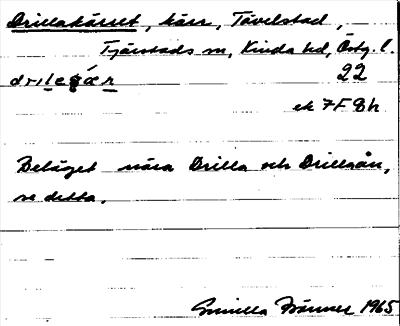 Drillakärret, kärr, Tävelstad,
Tjärstads sn, Kinda hd, Östg. l.
22
ek 7F 8h
Beläget nära Drilla och Drillaån,
se detta.
Gunilla 1965